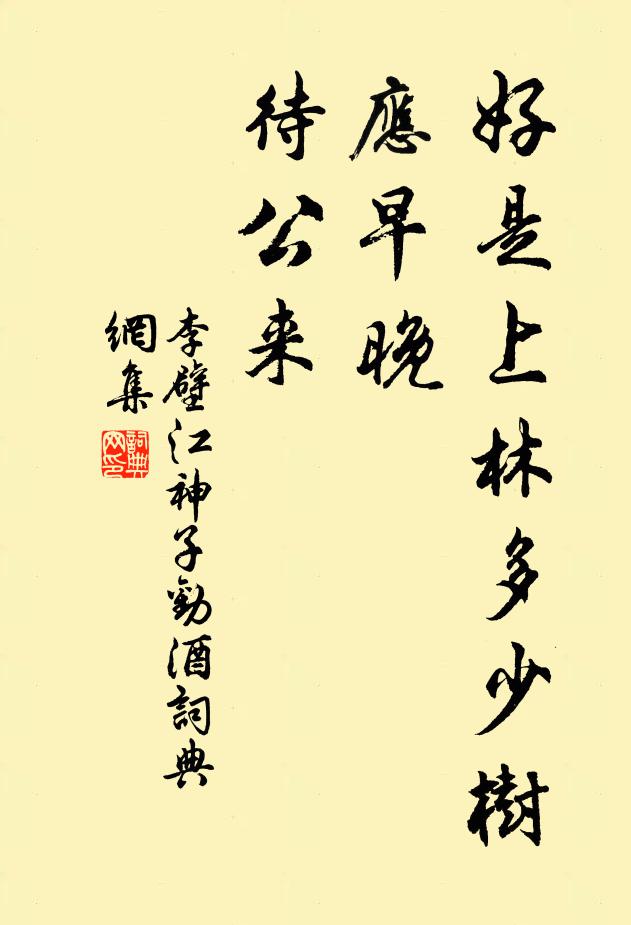 好是上林多少樹
應早晚
待公来
李壁江神子勸酒詞典
網集
詞典網印